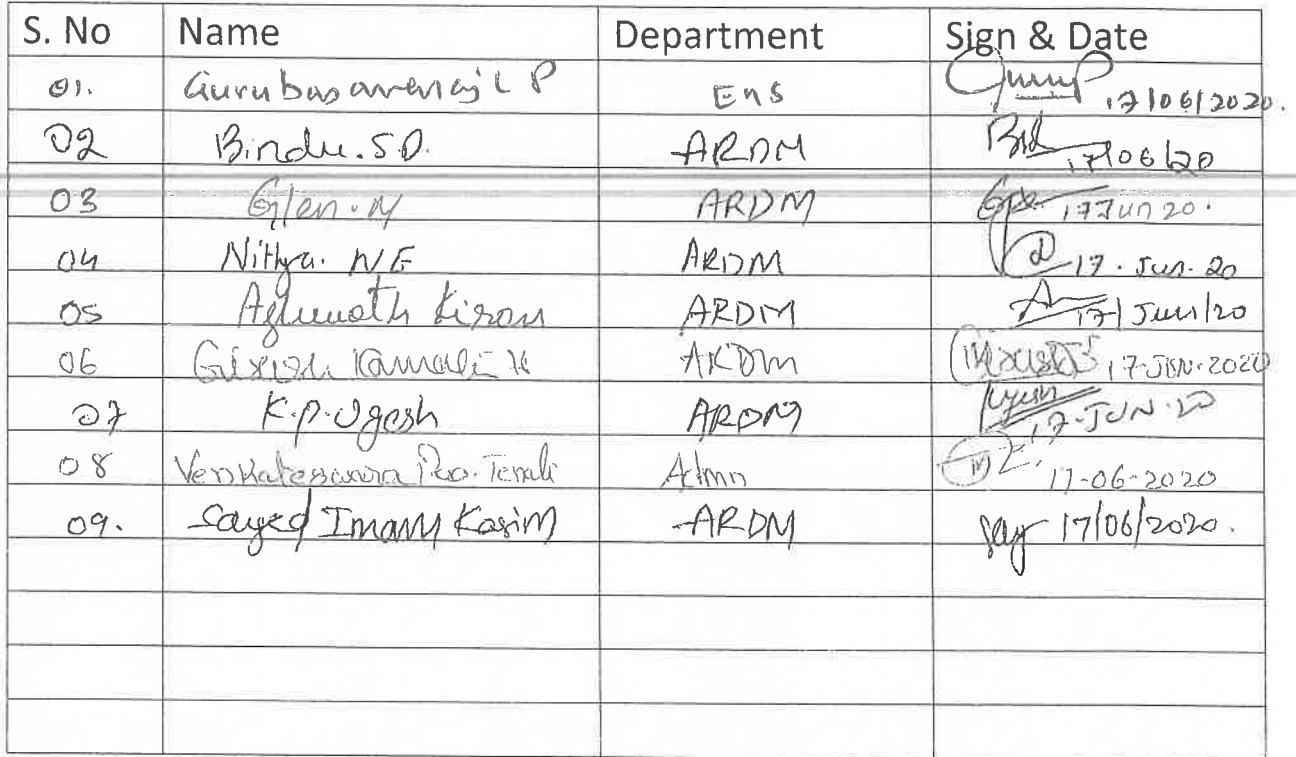 S. No Name Department Sign & Date
01. Gurubasavaraj L P EHS 17/06/2020.
02 Bindu. S.D. ARDM 17/06/20
03 Glen. M ARDM 17 Jun 20.
04 Nithya. N E ARDM 17. Jun. 20
05 Kiran ARDM 17/Jun/20
06 Girish Kamali H ARDM 17-JUN-2020
07 K.P. Ugesh ARDM 17-JUN-20
08 Venkateswara Rao. Tenali Admn 17-06-2020
09. Sayed Imam Kasim ARDM 17/06/2020.